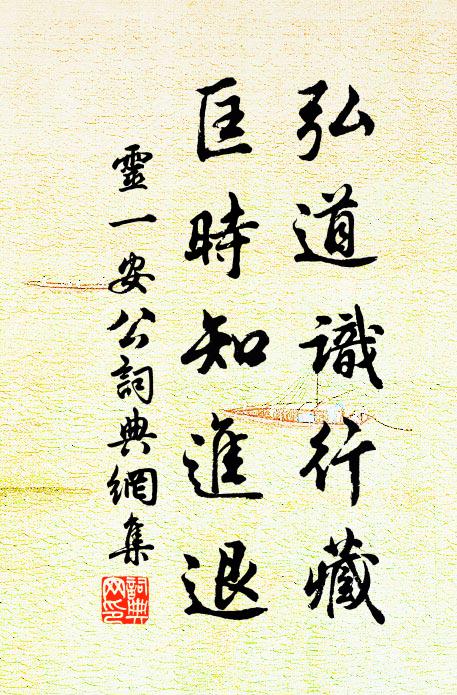 弘道識行藏
匡時知進退
靈一安公詞典網集
詞典网印